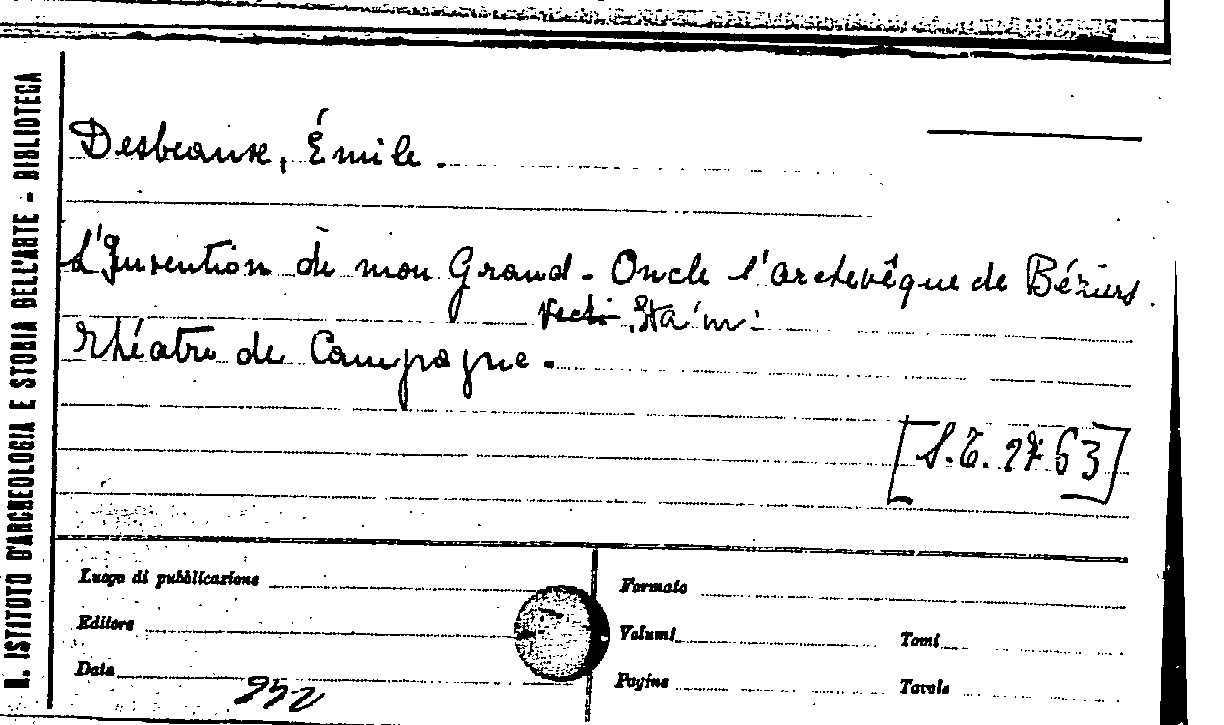 R. ISTITUTO D'ARCHEOLOGIA E STORIA DELL'ARTE - BIBLIOTECA
Desbeaux, Émile.
L'Invention de mon Grand-Oncle l'archevêque de Béziers.
Vedi
Théâtre de Campagne.
[S.T. 27 63]
Luogo di pubblicazione
Formato
Editore
Volumi
Tomi
Data
Pagine
Tavole
252